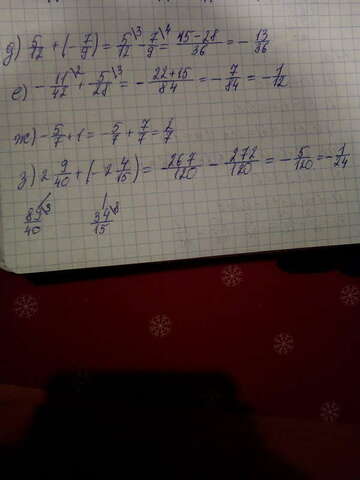 д) 5/12 + (- 7/9) = 5/12\3 - 7/9\4 = 15-28/36 = - 13/36
е) - 11/42\2 + 5/28\3 = - 22+15/84 = - 7/84 = - 1/12
ж) - 5/7 + 1 = - 5/7 + 7/7 = 2/7
з) 2 9/40 + (-2 4/15) = 267/120 - 272/120 = - 5/120 = - 1/24
89\3/40 34\8/15